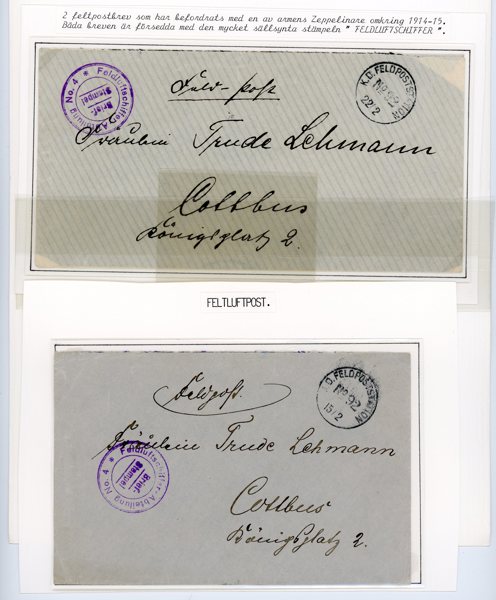 2 feltpostbrev som har befordrats med en av armens Zeppelinare omkring 1914-15.
Båda breven är försedda med den mycket sällsynta stämpeln " FELDLUFTSCHIFFER ".
Feldluftschiffer Abteilung No. 4 *
Brief-
Stempel
Feld-Post
K.D. FELDPOSTSTATION
No 92
22/2
Fräulein Trude Lehmann
Cottbus
Königsplatz 2.
FELTLUFTPOST.
Feldpost.
K.D. FELDPOSTSTATION
No 92
15/2
Fräulein Trude Lehmann
Feldluftschiffer-Abteilung No. 4 *
Brief-
Stempel
Cottbus
Königsplatz 2.